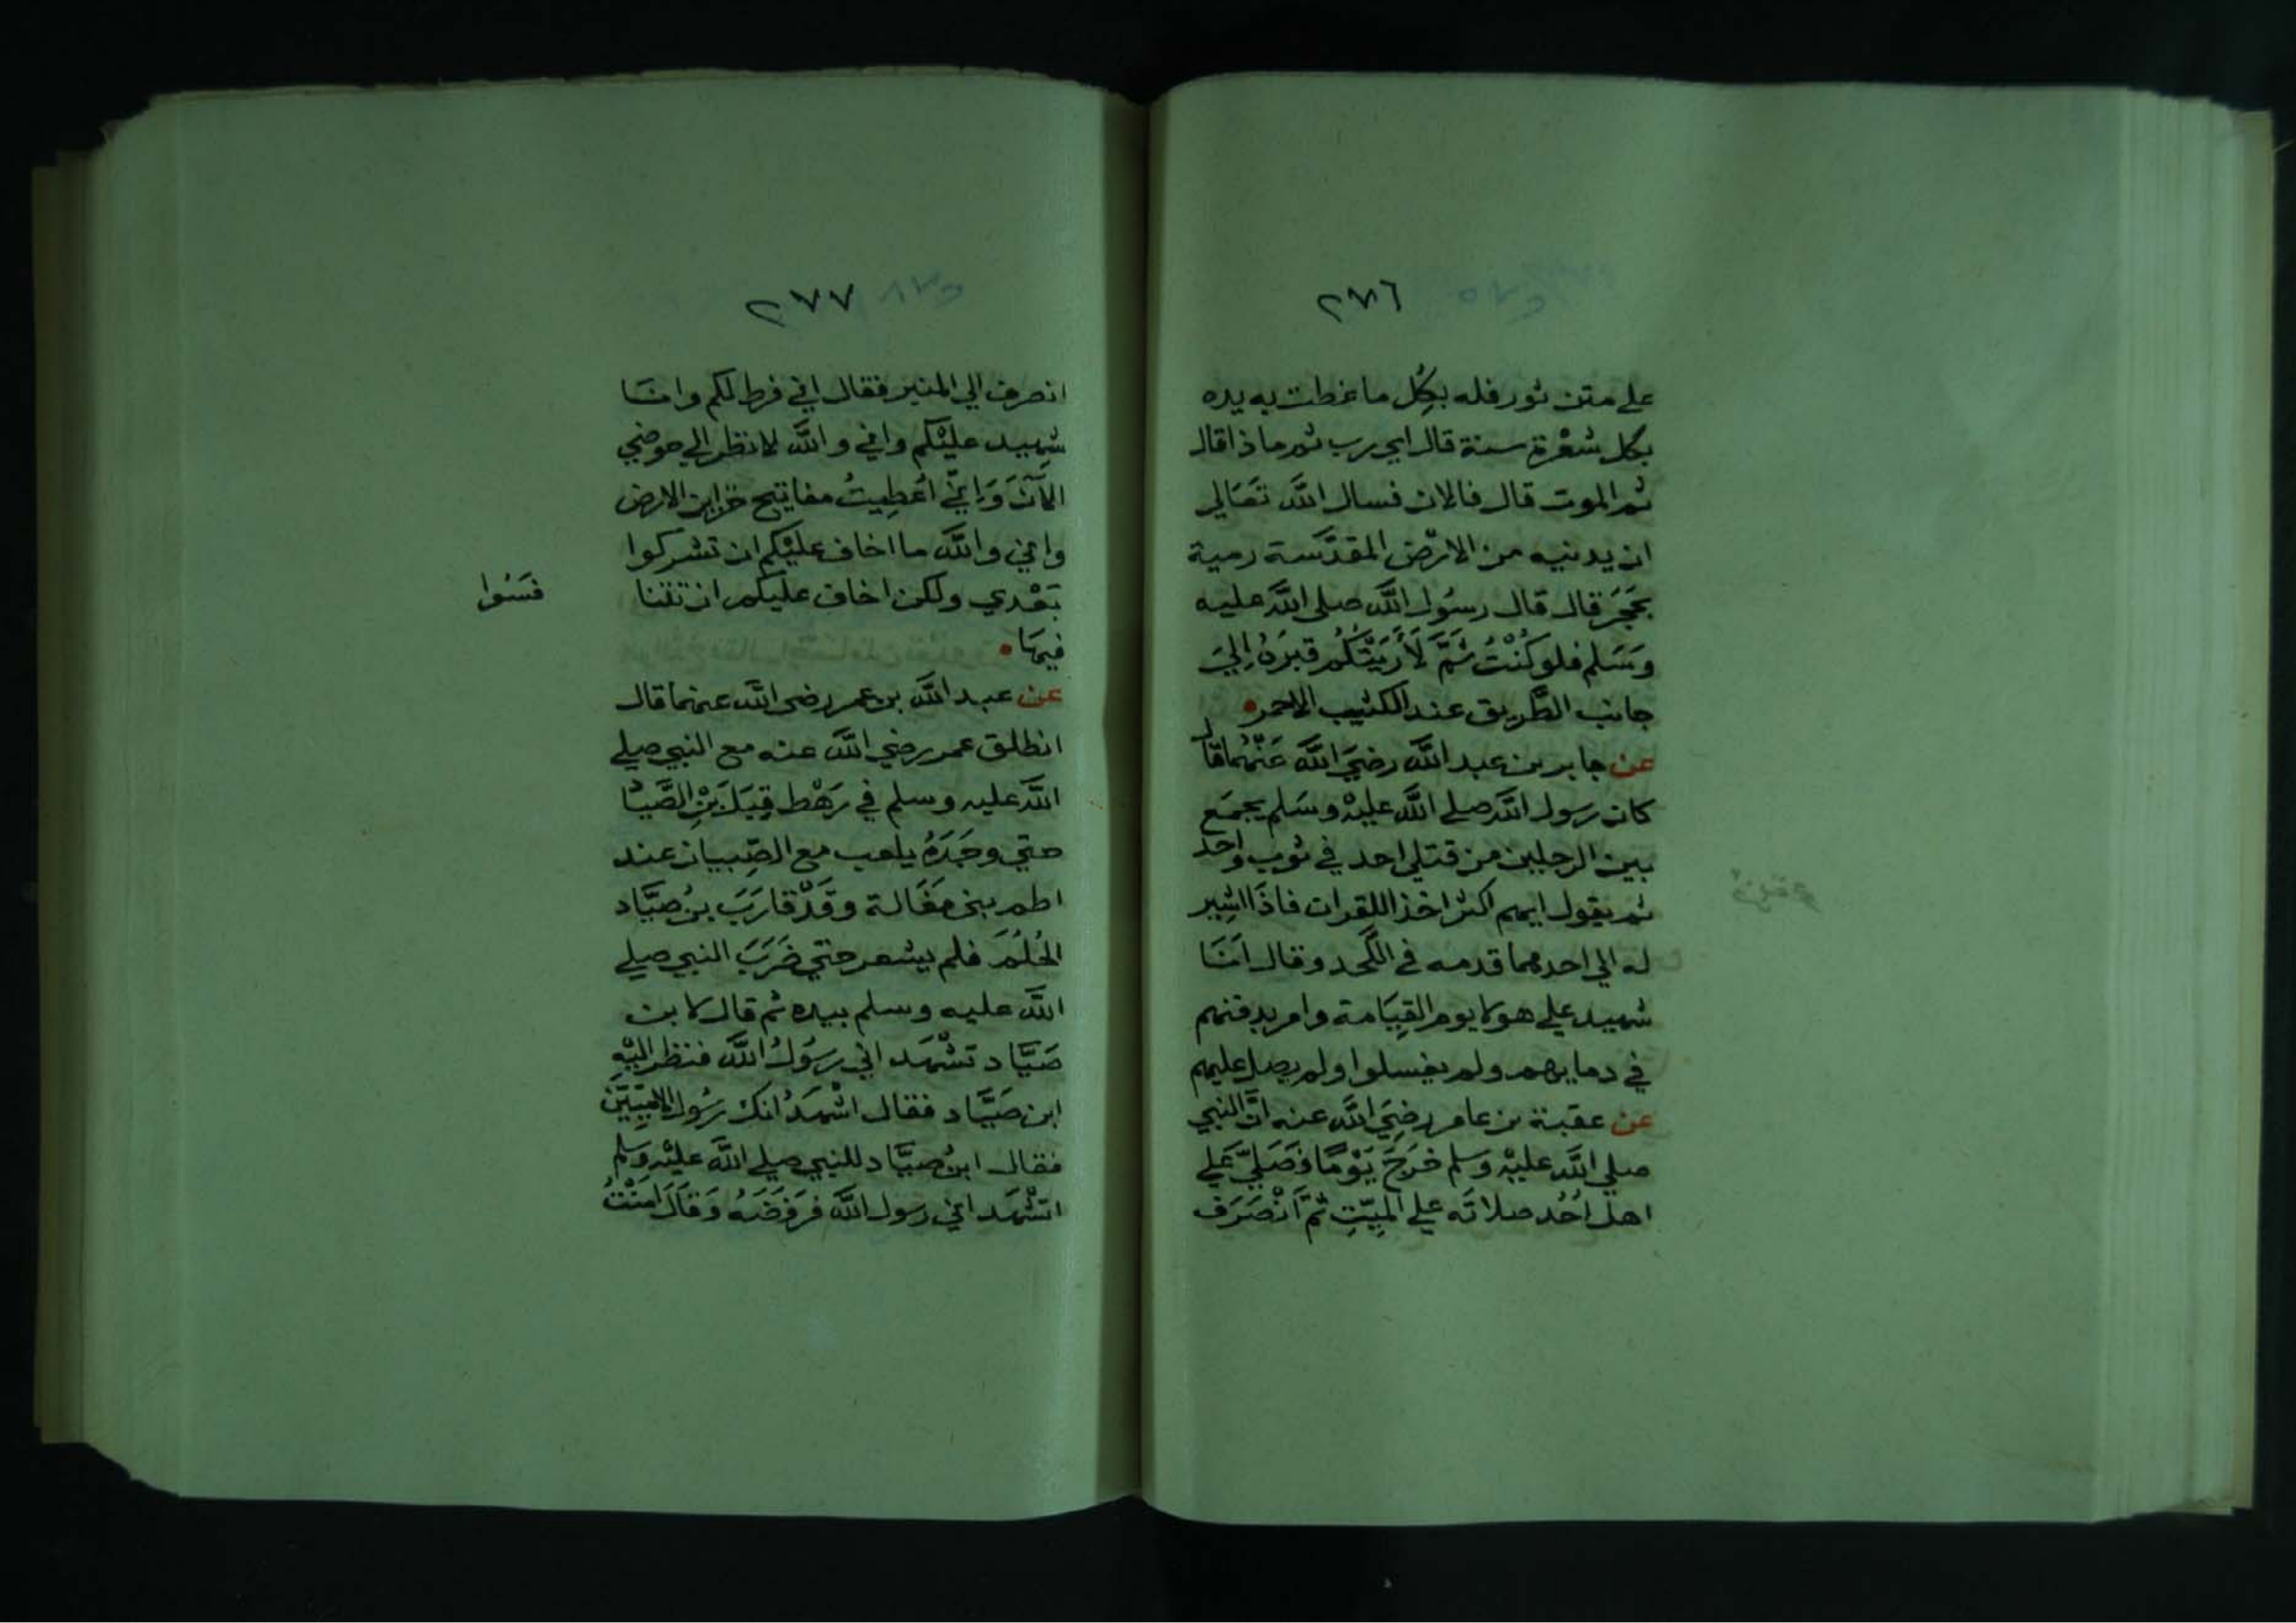 ٢٧٦
علي متن ثور فله بكُل ما غطت به يده
بكل شعْرة سنة قال اي رب ثم ماذا قال
ثم الموت قال فالان فسال اللَّه تَعَالي
ان يدنيه من الارْض المقدَّسَة رمية
بحَجَر قال قال رسُول اللَّه صلى اللَّه عليه
وَسَلم فلو كُنْتُ ثَمَّ لَأَرَيْتُكُم قبرَهُ إِليَ
جانب الطَّريق عند الكثيب الاحمر
عن جابر بن عبد اللَّه رضيَ اللَّه عَنْهُما قال
كان رسول اللَّه صلي اللَّه عليْه وسَلم يجمَع
بين الرجلين من قتلي احد في ثوب واحد
ثم يقول ايهم اكثر اخذ اللقران فاذَا اشِير
له الي احدهما قدمه في اللَّحد وقال انَا
شهيد علي هولا يوم القِيَامة وامر بدفنهم
في دمايهم ولم يغسلوا ولم يصل عليهم
عن عقبة بن عامر رضِيَ اللَّه عنه انَّ النبي
صلي اللَّه عليْه وَسلم خرَجَ يَوْمًا فَصَليَّ عَلي
اهل اُحُد صلاتَه علي الميِّتِ ثمَّ اَنْصَرَف
٢٧٧
انصرف الي المنبر فقال اني فرط لكم وانَا
شهِيد عليْكم واني واللَّه لانظر الي حوضي
الآنَ وَإِنيِّ اُعْطِيتُ مفاتيح خزاين الارض
واني واللَّه ما اخاف عليْكم ان تشركوا
بَعْدي ولكن اخاف عليكم ان تنا
فسَوا
فيهَا
عن عبد اللَّه بن عمر رضي اللَّه عنهما قال
انطلق عمر رضي اللَّه عنه مع النبي صلي
اللَّه عليه وسلم في رَهْط قِبَلَ بْنِ الصَّيا
حتي وجَدَهُ يلعب مع الصِّبيان عند
اطم بني مَغَالة وقَدْ قارَبَ بنُ صَيَّاد
الحُلُمَ فلم يشعر حتي ضَرَبَ النبي صلي
اللَّه عليه وسلم بيده ثم قال لابن
صَيَّاد تشْهَد اني رسُولُ اللَّه فنظر اليْهِ
ابن صَيَّاد فقال اشْهَدُ انك رسُول الامِيِّينَ
فقال ابنُ صيَّاد للنبي صلي اللَّه عليْه وَسلم
اتشْهَد اني رسول اللَّه فرَفَضَهُ وَقَالَ امَنْتُ